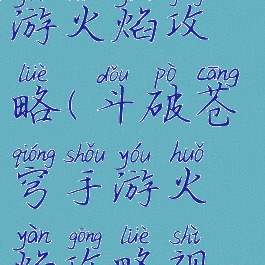 游火焰攻
lüè dǒu pò cāng
略(斗破苍
qióng shǒu yóu huǒ
穹手游火
yàn gōng lüè shì
焰攻略视